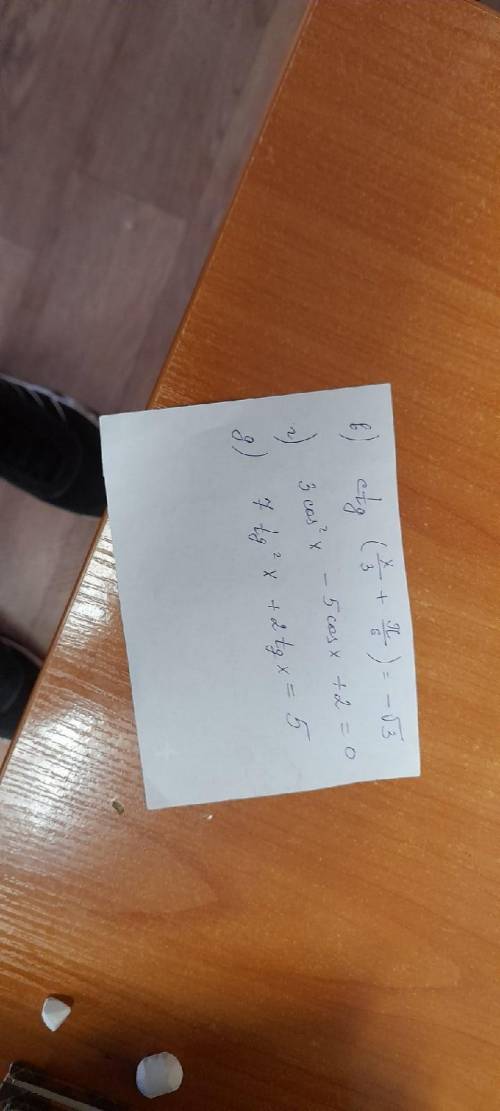 в) ctg (x/3 + π/6) = -√3
г) 3 cos² x - 5 cos x + 2 = 0
д) 7 tg² x + 2 tg x = 5